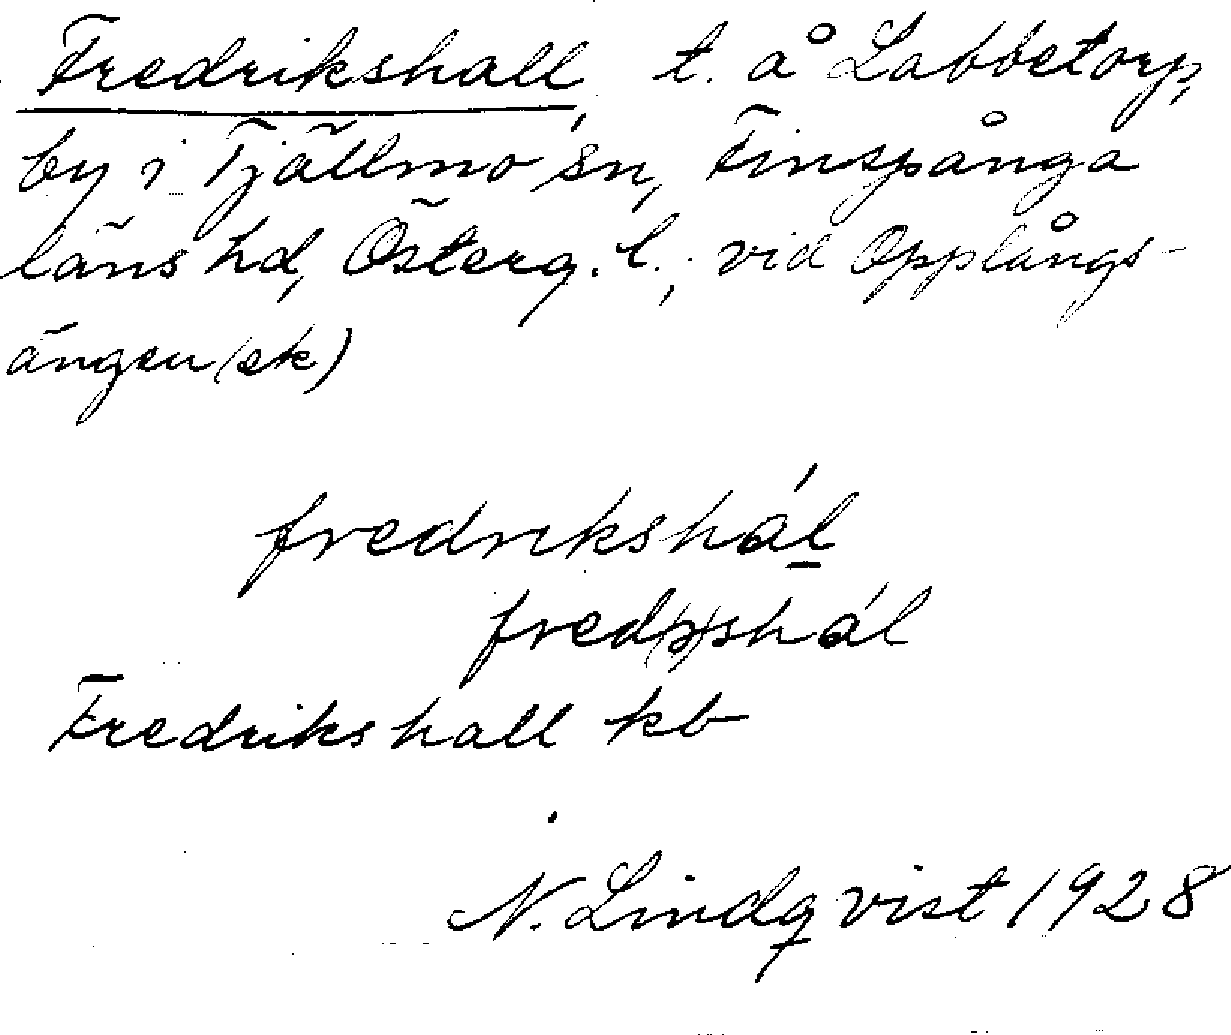 Fredrikshall, t. å Labbetorp,
by i Tjällmo sn, Finspånga
läns hd, Österg. l., vid Opplångs-
ängen (ek)
fredrikshál
fred(ə)shál
Fredrikshall kb
N. Lindqvist 1928